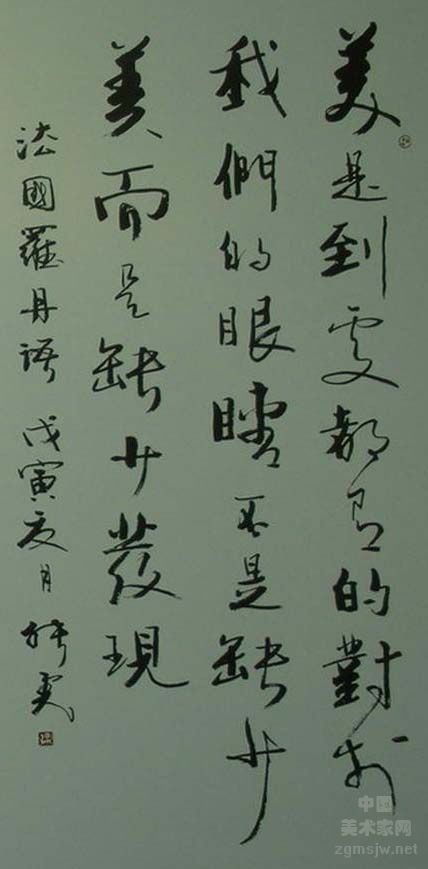 美是到處都有的對於
我們的眼睛不是缺少
美而是缺少發現
法國羅丹語 戊寅夏月
中国
美术家网
zgmsjw.net